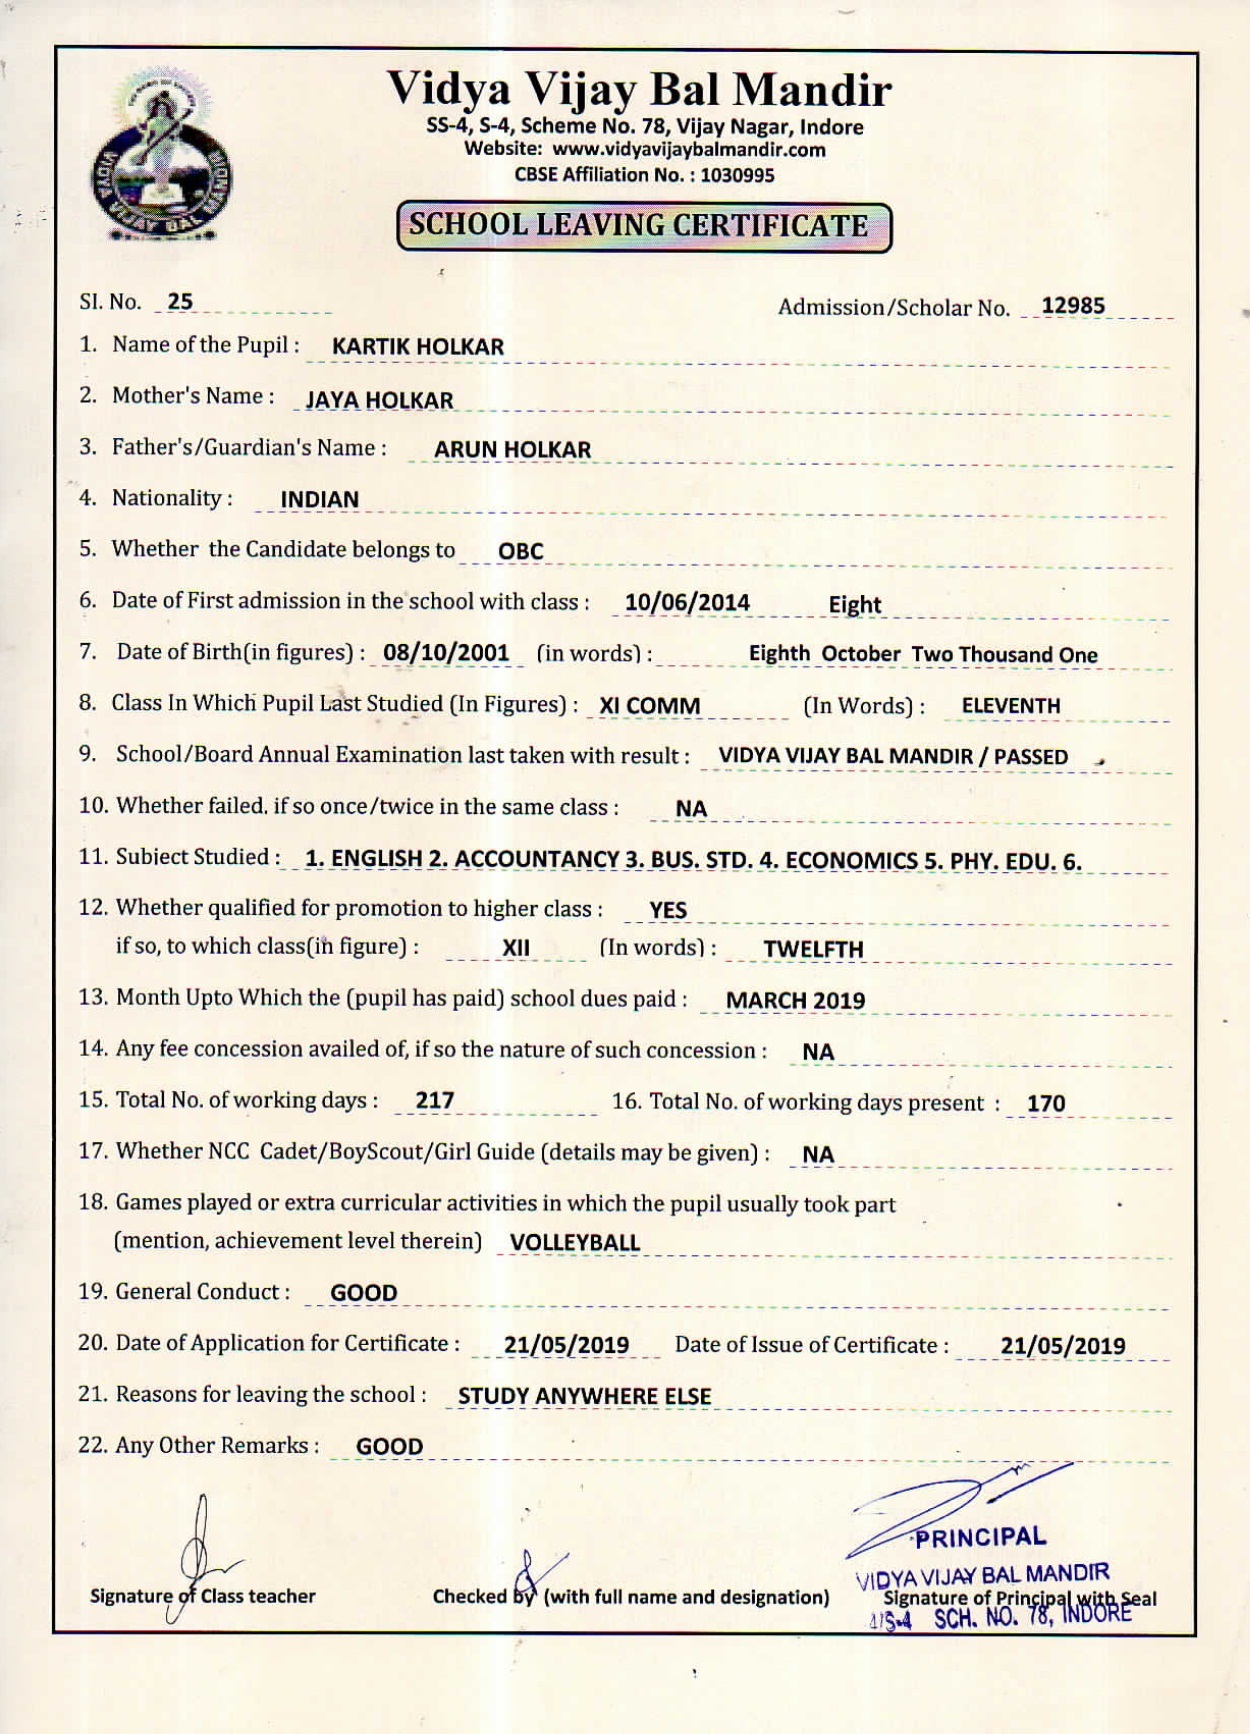 Vidya Vijay Bal Mandir
SS-4, S-4, Scheme No. 78, Vijay Nagar, Indore
Website: www.vidyavijaybalmandir.com
CBSE Affiliation No. : 1030995
VIDYA VIJAY BAL MANDIR
SCHOOL LEAVING CERTIFICATE
SI. No. 25 Admission/Scholar No. 12985
1. Name of the Pupil : KARTIK HOLKAR
2. Mother's Name : JAYA HOLKAR
3. Father's/Guardian's Name : ARUN HOLKAR
4. Nationality : INDIAN
5. Whether the Candidate belongs to OBC
6. Date of First admission in the school with class : 10/06/2014 Eight
7. Date of Birth(in figures) : 08/10/2001 (in words) : Eighth October Two Thousand One
8. Class In Which Pupil Last Studied (In Figures) : XI COMM (In Words) : ELEVENTH
9. School/Board Annual Examination last taken with result : VIDYA VIJAY BAL MANDIR / PASSED
10. Whether failed, if so once/twice in the same class : NA
11. Subject Studied : 1. ENGLISH 2. ACCOUNTANCY 3. BUS. STD. 4. ECONOMICS 5. PHY. EDU. 6.
12. Whether qualified for promotion to higher class : YES
if so, to which class(in figure) : XII (In words) : TWELFTH
13. Month Upto Which the (pupil has paid) school dues paid : MARCH 2019
14. Any fee concession availed of, if so the nature of such concession : NA
15. Total No. of working days : 217 16. Total No. of working days present : 170
17. Whether NCC Cadet/BoyScout/Girl Guide (details may be given) : NA
18. Games played or extra curricular activities in which the pupil usually took part
(mention, achievement level therein) VOLLEYBALL
19. General Conduct : GOOD
20. Date of Application for Certificate : 21/05/2019 Date of Issue of Certificate : 21/05/2019
21. Reasons for leaving the school : STUDY ANYWHERE ELSE
22. Any Other Remarks : GOOD
PRINCIPAL
VIDYA VIJAY BAL MANDIR
Signature of Class teacher Checked By (with full name and designation) Signature of Principal with Seal
SCH. NO. 78, INDORE